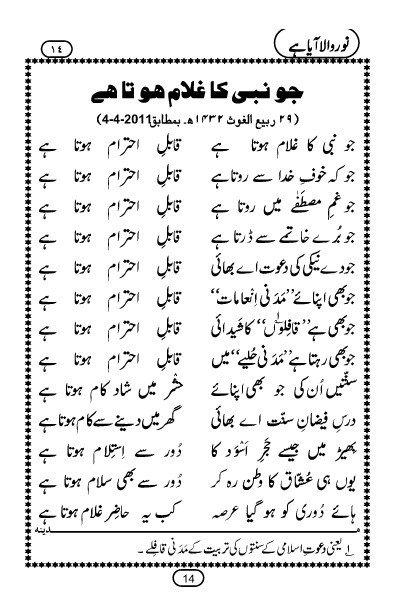 نور والا آیا ہے
۱۴
جو نبی کا غلام ہوتا ہے
(۲۹ ربیع الغوث ۱۴۳۲ھ۔ بمطابق 2011-4-4)
جو نبی کا غلام ہوتا ہے قابلِ احترام ہوتا ہے
جو کہ خوفِ خدا سے روتا ہے قابلِ احترام ہوتا ہے
جو غمِ مصطفٰے میں روتا ہے قابلِ احترام ہوتا ہے
جو بُرے خاتمے سے ڈرتا ہے قابلِ احترام ہوتا ہے
جو دے نیکی کی دعوت اے بھائی قابلِ احترام ہوتا ہے
جو بھی اپنائے ”مَدَنی اِنعامات“ قابلِ احترام ہوتا ہے
جو بھی ہے ”قافِلوں“ؕ۱ کا شیدائی قابلِ احترام ہوتا ہے
جو بھی رہتا ہے ”مَدَنی حُلیے“ میں قابلِ احترام ہوتا ہے
سنّتیں اُن کی جو بھی اپنائے حشْر میں شاد کام ہوتا ہے
درسِ فیضانِ سنّت اے بھائی گھر میں دینے سے کام ہوتا ہے
بِھیڑ میں جیسے حَجَرِ اَسْوَد کا دُور سے اِستِلام ہوتا ہے
یوں ہی عُشّاق کا وطن رہ کر دُور سے بھی سلام ہوتا ہے
ہائے دُوری کو ہو گیا عرصہ کب یہ حاضِر غلام ہوتا ہے
مدینہ
۱ یعنی دعوتِ اسلامی کے سنتوں کی تربیت کے مَدَنی قافِلے۔
14